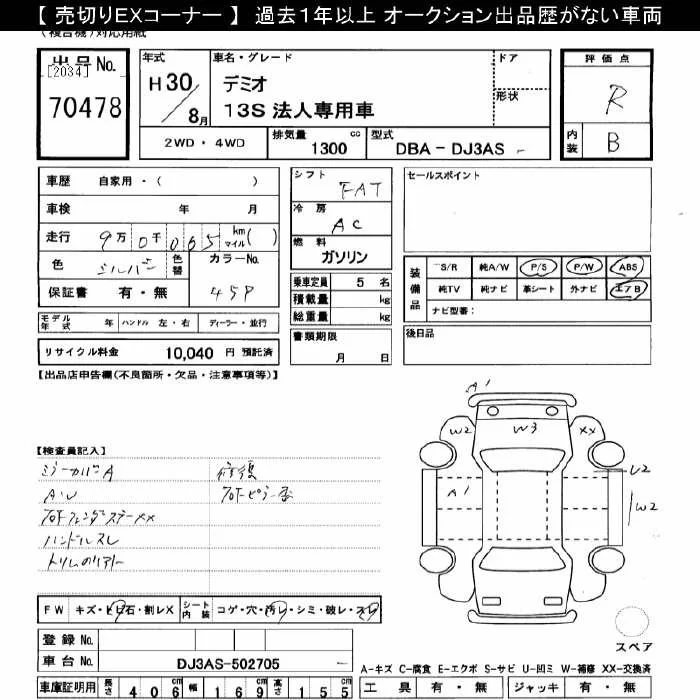 【 売切りEXコーナー 】 過去1年以上 オークション出品歴がない車両
(複合機)対応用紙
出品No.
[2034]
70478
年式
H30/8月
車名・グレード
デミオ
13S 法人専用車
ドア
形状
評価点
R
内装 B
2WD・4WD
排気量 cc
1300
型式
DBA - DJ3AS -
車歴 自家用・( )
車検 年 月
走行 9万0千065 km マイル( )
色 シルバー 色替 カラーNo.
保証書 有・無 45P
シフト
FAT
冷房
AC
燃料
ガソリン
乗車定員 5 名
積載量 kg
総重量 kg
セールスポイント
装備品
S/R 純A/W P/S P/W ABS
純TV 純ナビ 革シート 外ナビ エアB
ナビ型番:
モデル年式 年 ハンドル 左・右 ディーラー・並行
書類期限
月 日
後日品
リサイクル料金 10,040 円 預託済
【出品店申告欄(不良箇所・欠品・注意事項等)】
A1
W2 W3 XX
A1 U2
W2
【検査員記入】
A・U
ハンドルスレ
修復
FW キズ・ヒビ石・割レX シート内装 コゲ・穴・汚レ・シミ・破レ・スレ
登録No.
車台No. DJ3AS-502705 -
スペア
A-キズ C-腐食 E-エクボ S-サビ U-凹ミ W-補修 XX-交換済
車庫証明用 長さ 406 cm 幅 169 cm 高さ 155 cm
工具 有・無 ジャッキ 有・無